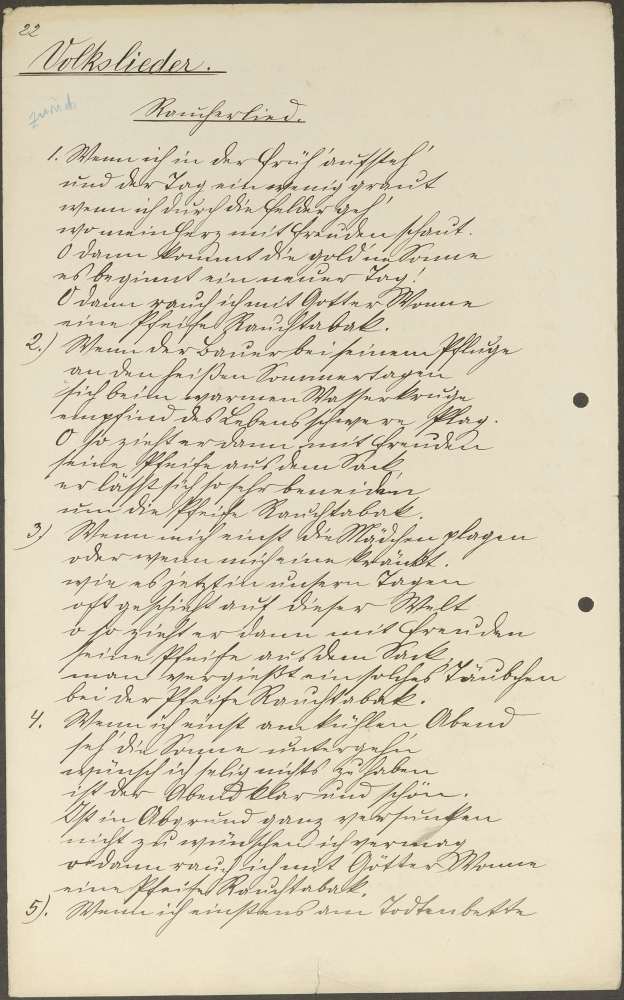 22
Volkslieder.
zurück
Raucherlied.
1. Wenn ich in der Früh' aufsteh'
und der Tag ein wenig graut
wenn ich durch die Felder geh'
wo mein Herz mit Freuden schaut.
O dann kommt die gold'ne Sonne
es beginnt ein neuer Tag!
O dann rauch ich mit Götter Wonne
eine Pfeife Rauchtabak.
2.) Wenn der Bauer bei seinem Pfluge
an den heißen Sommertagen
sich beim warmen Wasserkruge
empfind des Lebens schwere Plag.
O so zieht er dann mit Freuden
seine Pfeife aus dem Sack
er läßt sich so sehr beneiden
um die Pfeife Rauchtabak.
3.) Wenn mich einst die Mädchen plagen
oder wenn mich eine kränkt.
wie es jetzt in unsern Tagen
oft geschieht auf dieser Welt
o so zieht er dann mit Freuden
seine Pfeife aus dem Sack,
man vergießt ein solches Täubchen
bei der Pfeife Rauchtabak.
4. Wenn ich einst am kühlen Abend
seh' die Sonne untergehn
wünsch ich selig nichts zu haben
ist der Abend klar und schön.
Ist in Abgrund ganz versunken
nicht zu wünschen ich vermag
o dann rauch ich mit Götter Wonne
eine Pfeife Rauchtabak.
5). Wenn ich einstens am Todtenbette